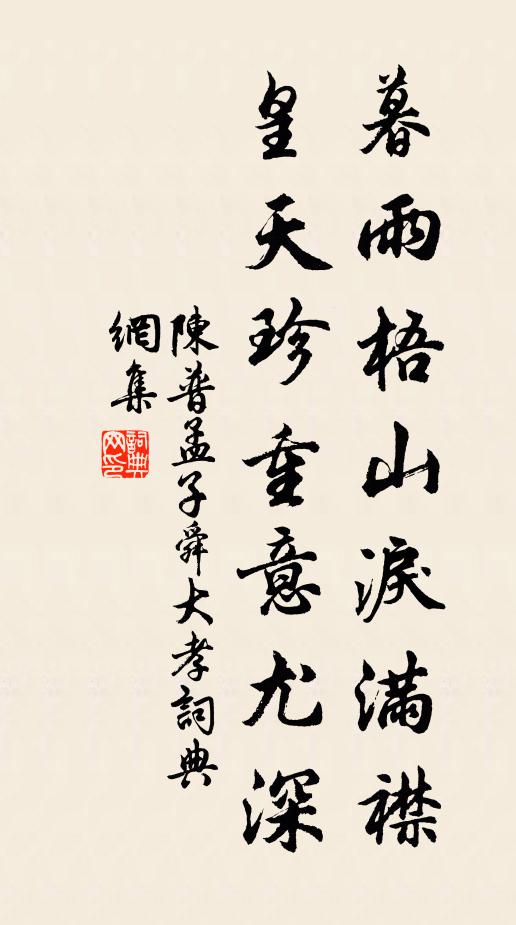 暮雨梧山淚滿襟
皇天珍重意尤深
陳普孟子舜大孝詞典
網集
詞典網印